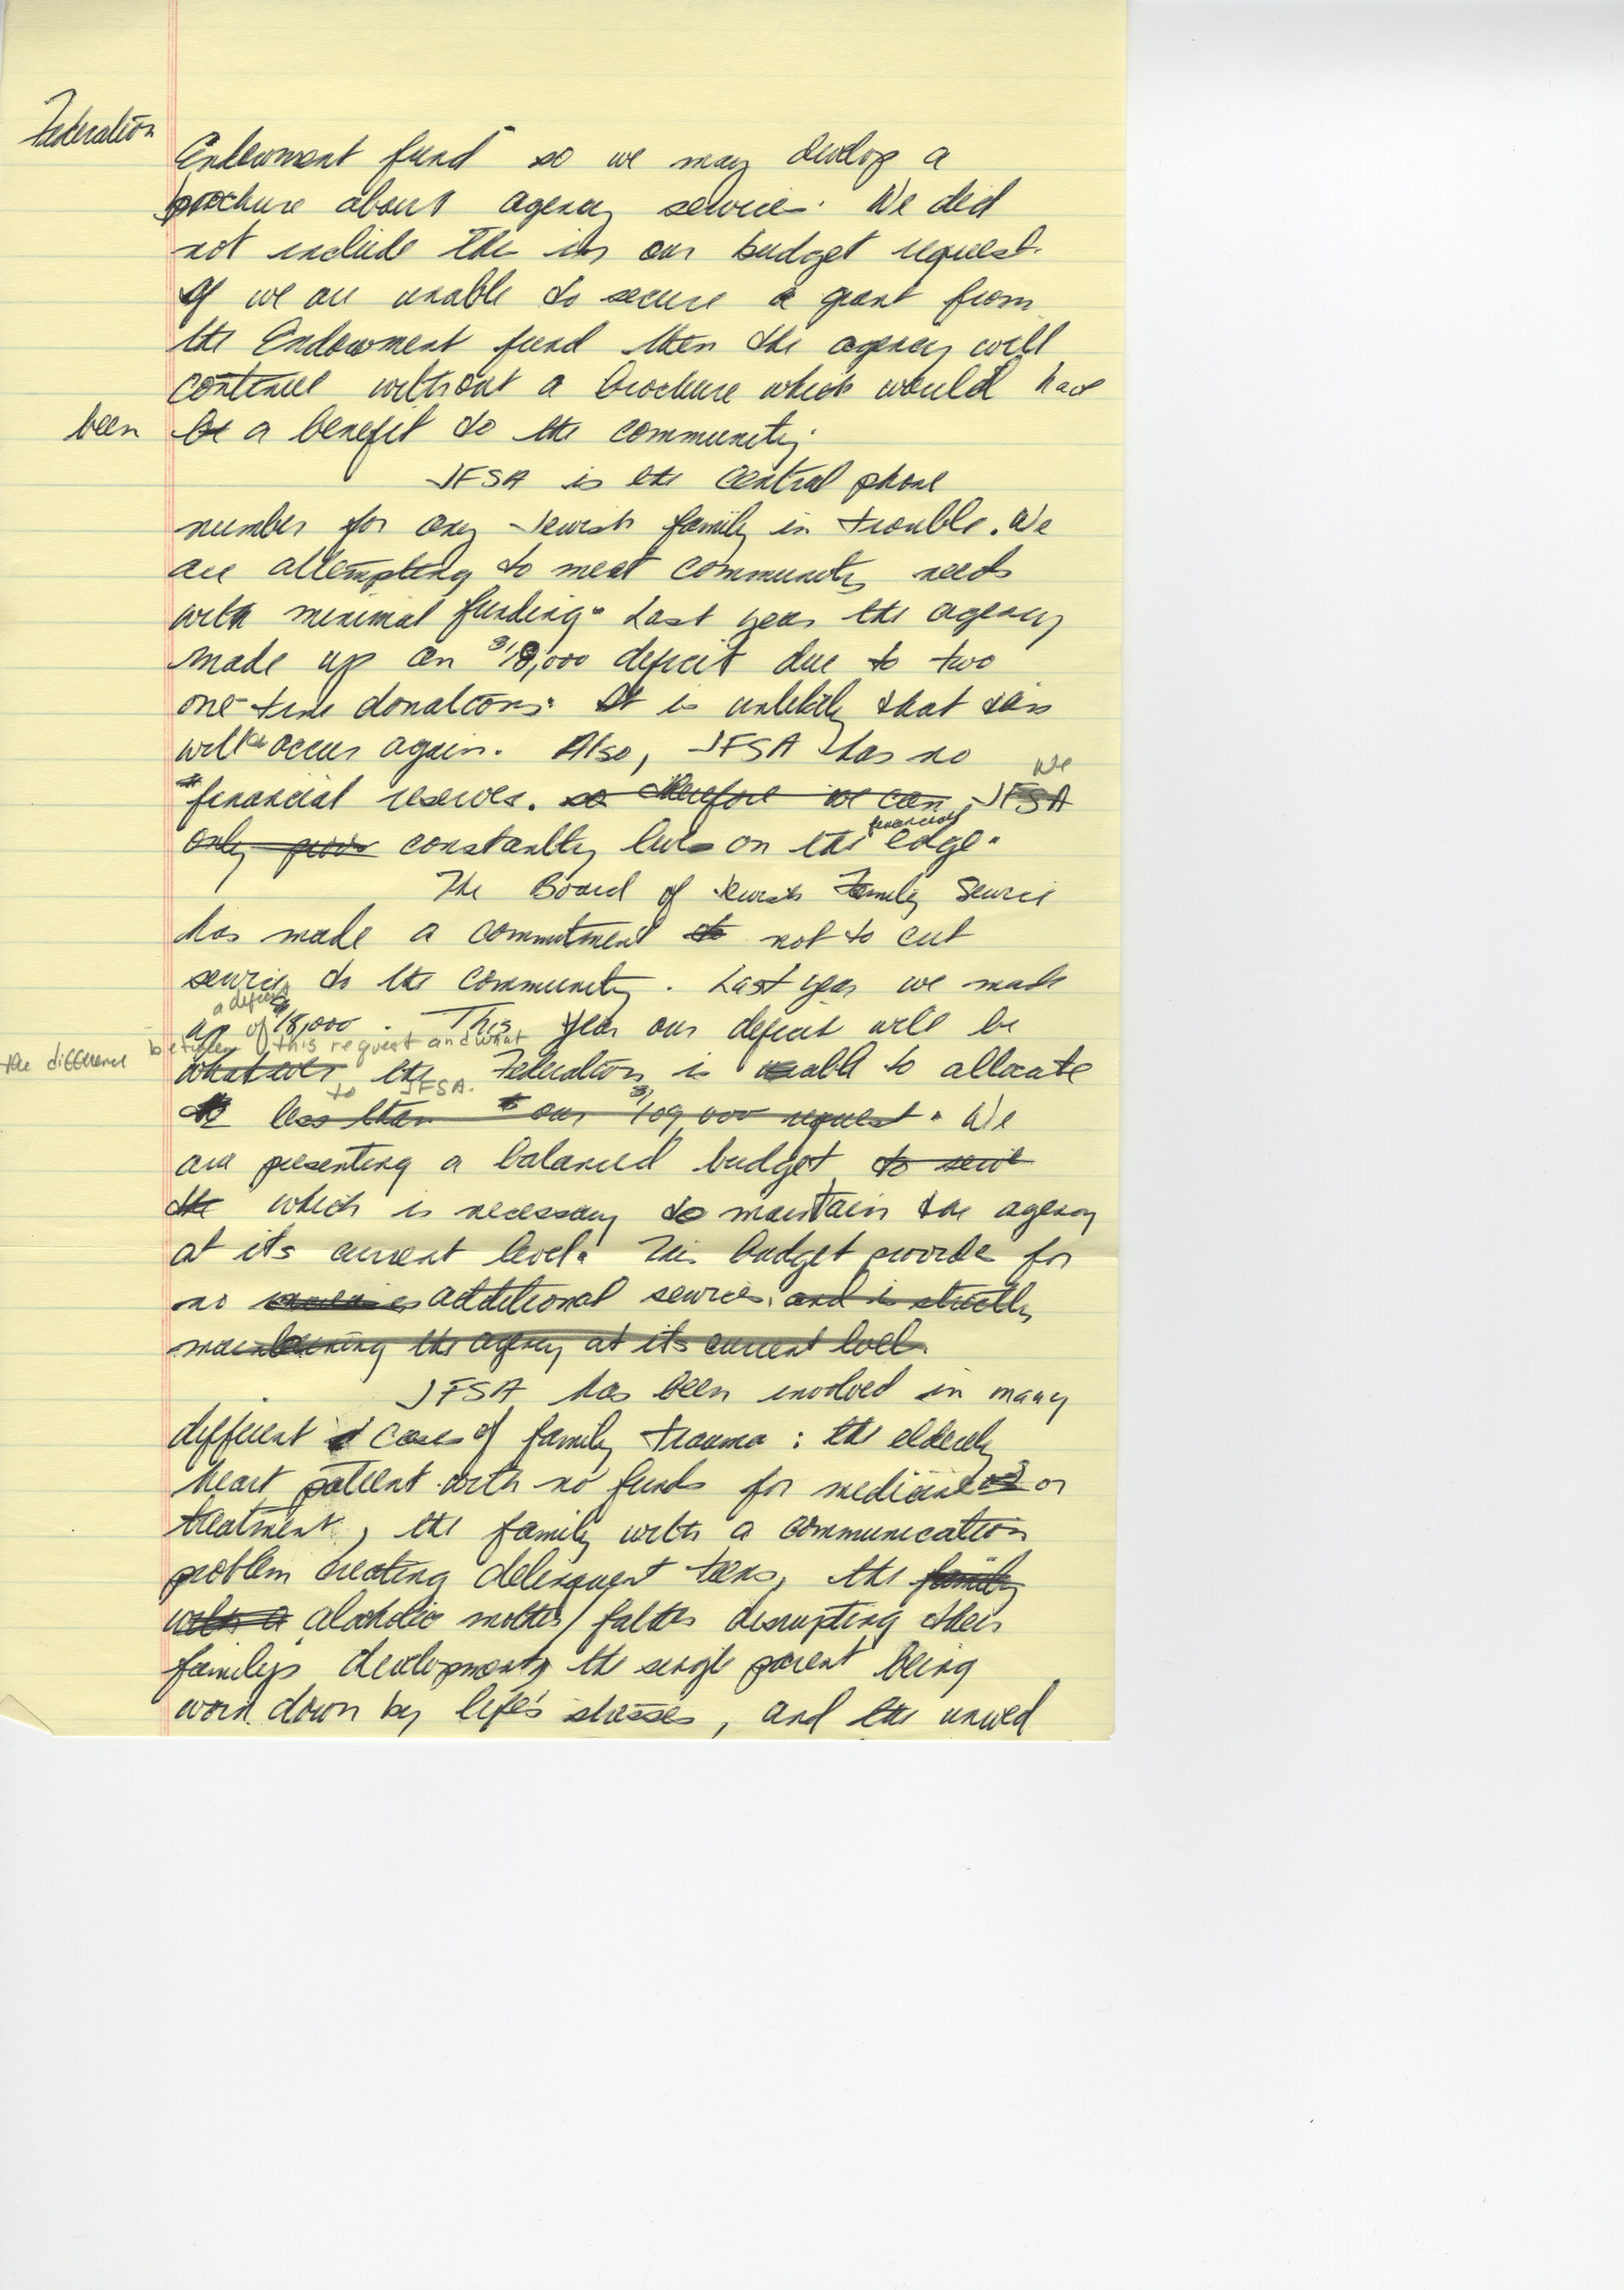 Federation Endowment fund so we may develop a
brochure about agency services. We did
not include this in our budget request.
If we are unable to secure a grant from
the Endowment fund then the agency will
continue without a brochure which would have
been be a benefit to the community.
JFSA is the central phone
number for any Jewish family in trouble. We
are attempting to meet community needs
with minimal funding. Last year the agency
made up an $18,000 deficit due to two
one-time donations. It is unlikely that this
will occur again. Also, JFSA has no
We
financial reserves. so therefore we can, JFSA
financial
only constantly lives on the edge.
The Board of Jewish Family Service
has made a commitment to not to cut
services to the community. Last year we made
a deficit
up of $18,000. This year our deficit will be
the difference between this request and what
whatever the Federation is able to allocate
to JFSA.
less than our $109,000 request. We
are presenting a balanced budget to serve
the which is necessary to maintain the agency
at its current level. This budget provides for
no additional services. and is strictly
maintaining the agency at its current level.
JFSA has been involved in many
different cases of family trauma: the elderly
heart patient with no funds for medicine or
treatment, the family with a communication
problem creating delinquent teens, the family
with a alcoholic mother/father disrupting their
family's development, the single parent being
worn down by life's stresses, and the unwed